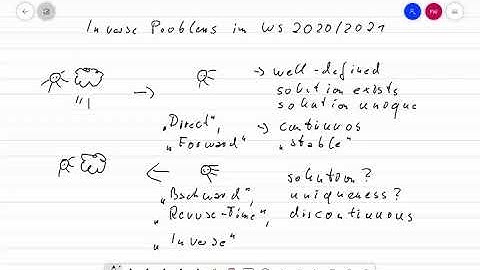 Inverse Problems in WS 2020/2021
→ well-defined
solution exists
solution unique
"Direct", → continuos
"Forward" "stable"
solution?
"Backward", uniqueness?
"Revuse-Time", discontinuous
"Inverse"